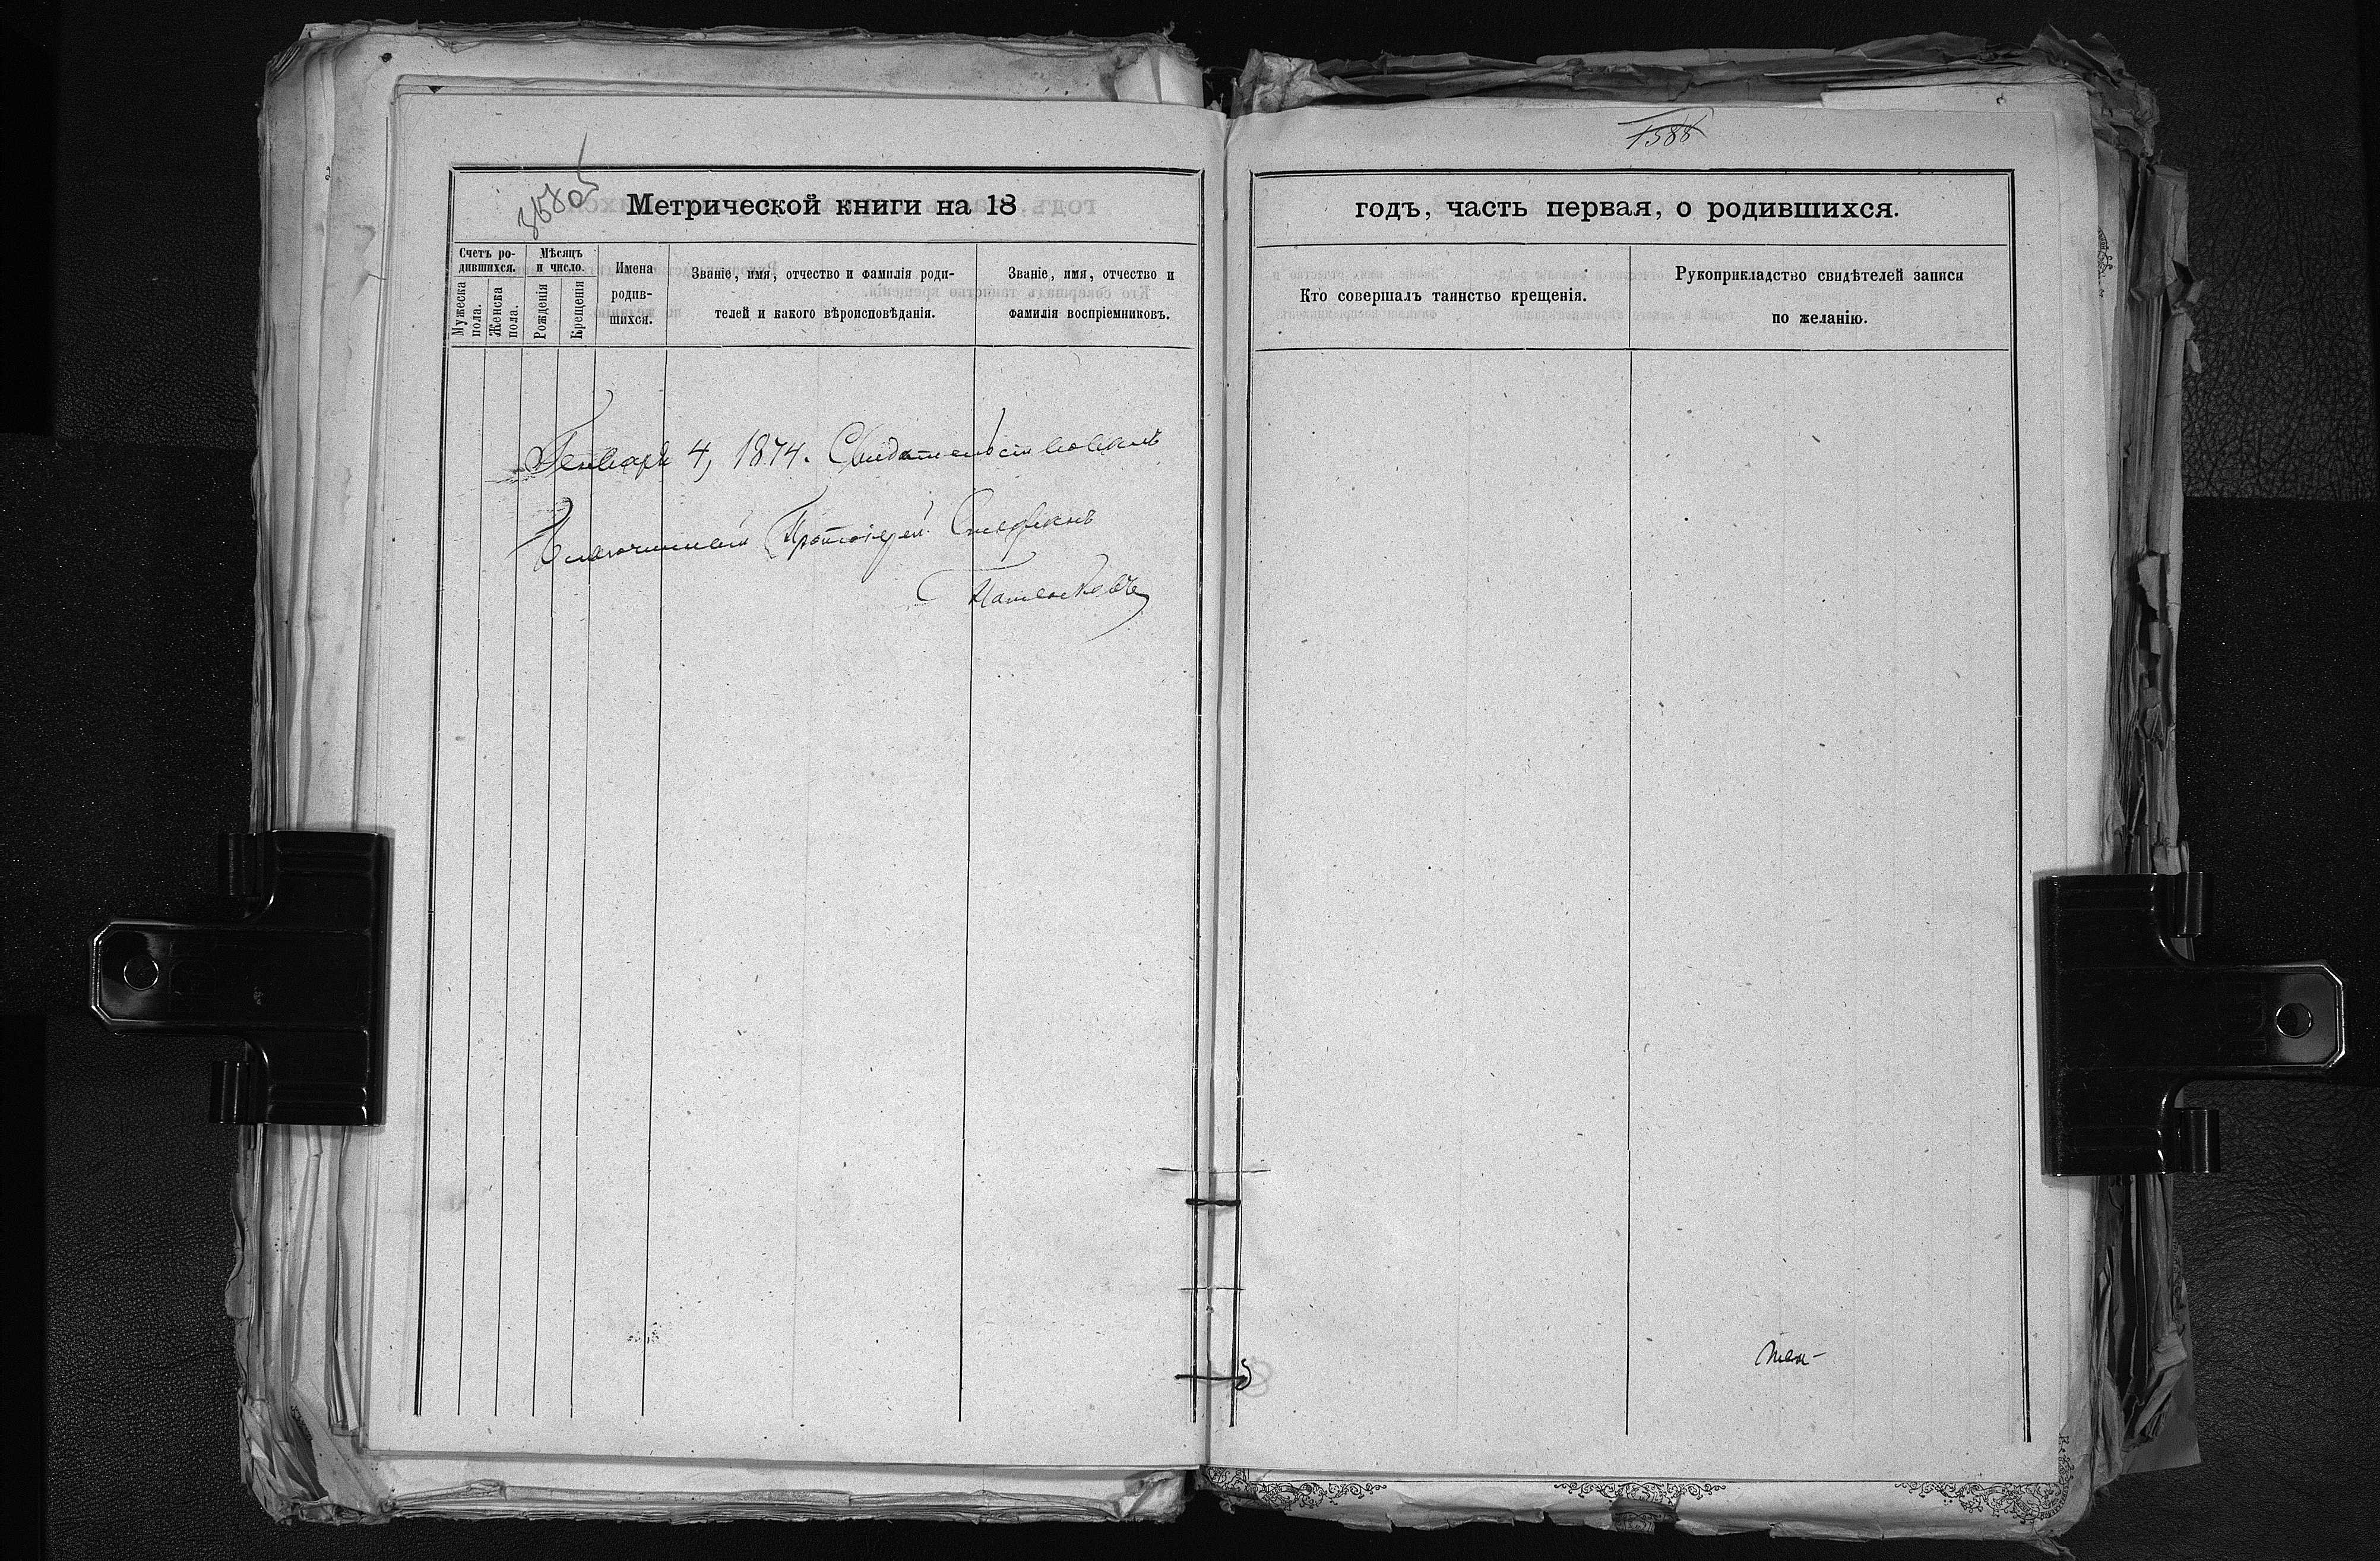 1588
Метрической книги на 18
годъ, часть первая, о родившихся.
Счетъ ро-
дившихся.
Мужеска
пола.
Женска
пола.
Мѣсяцъ
и число.
Рожденія
Крещенія
Имена
родив-
шихся.
Званіе, имя, отчество и фамилія роди-
телей и какого вѣроисповѣданія.
Званіе, имя, отчество и
фамилія воспріемниковъ.
Кто совершалъ таинство крещенія.
Рукоприкладство свидѣтелей записи
по желанію.
Генваря 4, 1874. Свидѣтельствовалъ
Благочинный Протоіерей Стефанъ